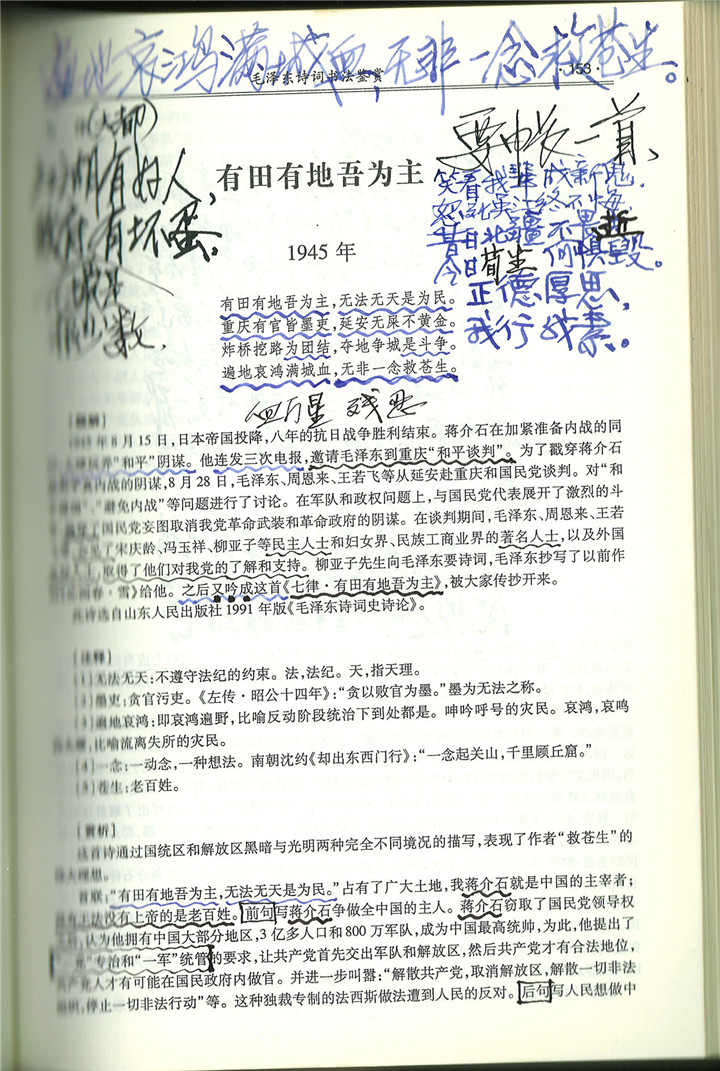 遍地哀鸿满城血,无非一念救苍生。
毛泽东诗词书法鉴赏
·153·
有好人,
有坏蛋。
数.
一首,
笑看我辈成新鬼.
昔日北疆不畏逝
今日何惧毁。
正德厚思,
我行我素。
有田有地吾为主
1945 年
有田有地吾为主,无法无天是为民。
重庆有官皆墨吏,延安无屎不黄金。
炸桥挖路为团结,夺地争城是斗争。
遍地哀鸿满城血,无非一念救苍生。
[题解]
1945 年 8 月 15 日,日本帝国投降,八年的抗日战争胜利结束。蒋介石在加紧准备内战的同
“和平”阴谋。他连发三次电报,邀请毛泽东到重庆“和平谈判”。为了戳穿蒋介石
真内战的阴谋,8 月 28 日,毛泽东、周恩来、王若飞等从延安赴重庆和国民党谈判。对“和
”、“避免内战”等问题进行了讨论。在军队和政权问题上,与国民党代表展开了激烈的斗
了国民党妄图取消我党革命武装和革命政府的阴谋。在谈判期间,毛泽东、周恩来、王若
会见了宋庆龄、冯玉祥、柳亚子等民主人士和妇女界、民族工商业界的著名人士,以及外国
人士,取得了他们对我党的了解和支持。柳亚子先生向毛泽东要诗词,毛泽东抄写了以前作
春·雪》给他。之后又吟成这首《七律·有田有地吾为主》,被大家传抄开来。
此诗选自山东人民出版社 1991 年版《毛泽东诗词史诗论》。
[注释]
(1)无法无天:不遵守法纪的约束。法,法纪。天,指天理。
(2)墨吏:贪官污吏。《左传·昭公十四年》:“贪以败官为墨。”墨为无法之称。
(3)遍地哀鸿:即哀鸿遍野,比喻反动阶段统治下到处都是。呻吟呼号的灾民。哀鸿,哀鸣
,比喻流离失所的灾民。
(4)一念:一动念,一种想法。南朝沈约《却出东西门行》:“一念起关山,千里顾丘窟。”
(5)苍生:老百姓。
[赏析]
这首诗通过国统区和解放区黑暗与光明两种完全不同境况的描写,表现了作者“救苍生”的
伟大理想。
首联:“有田有地吾为主,无法无天是为民。”占有了广大土地,我蒋介石就是中国的主宰者;
没有王法没有上帝的是老百姓。前句写蒋介石争做全中国的主人。蒋介石窃取了国民党领导权
,认为他拥有中国大部分地区,3 亿多人口和 800 万军队,成为中国最高统帅,为此,他提出了
”专治和“一军”统管的要求,让共产党首先交出军队和解放区,然后共产党才有合法地位,
共产党人才有可能在国民政府内做官。并进一步叫嚣:“解散共产党,取消解放区,解散一切非法
组织,停止一切非法行动”等。这种独裁专制的法西斯做法遭到人民的反对。后句写人民想做中